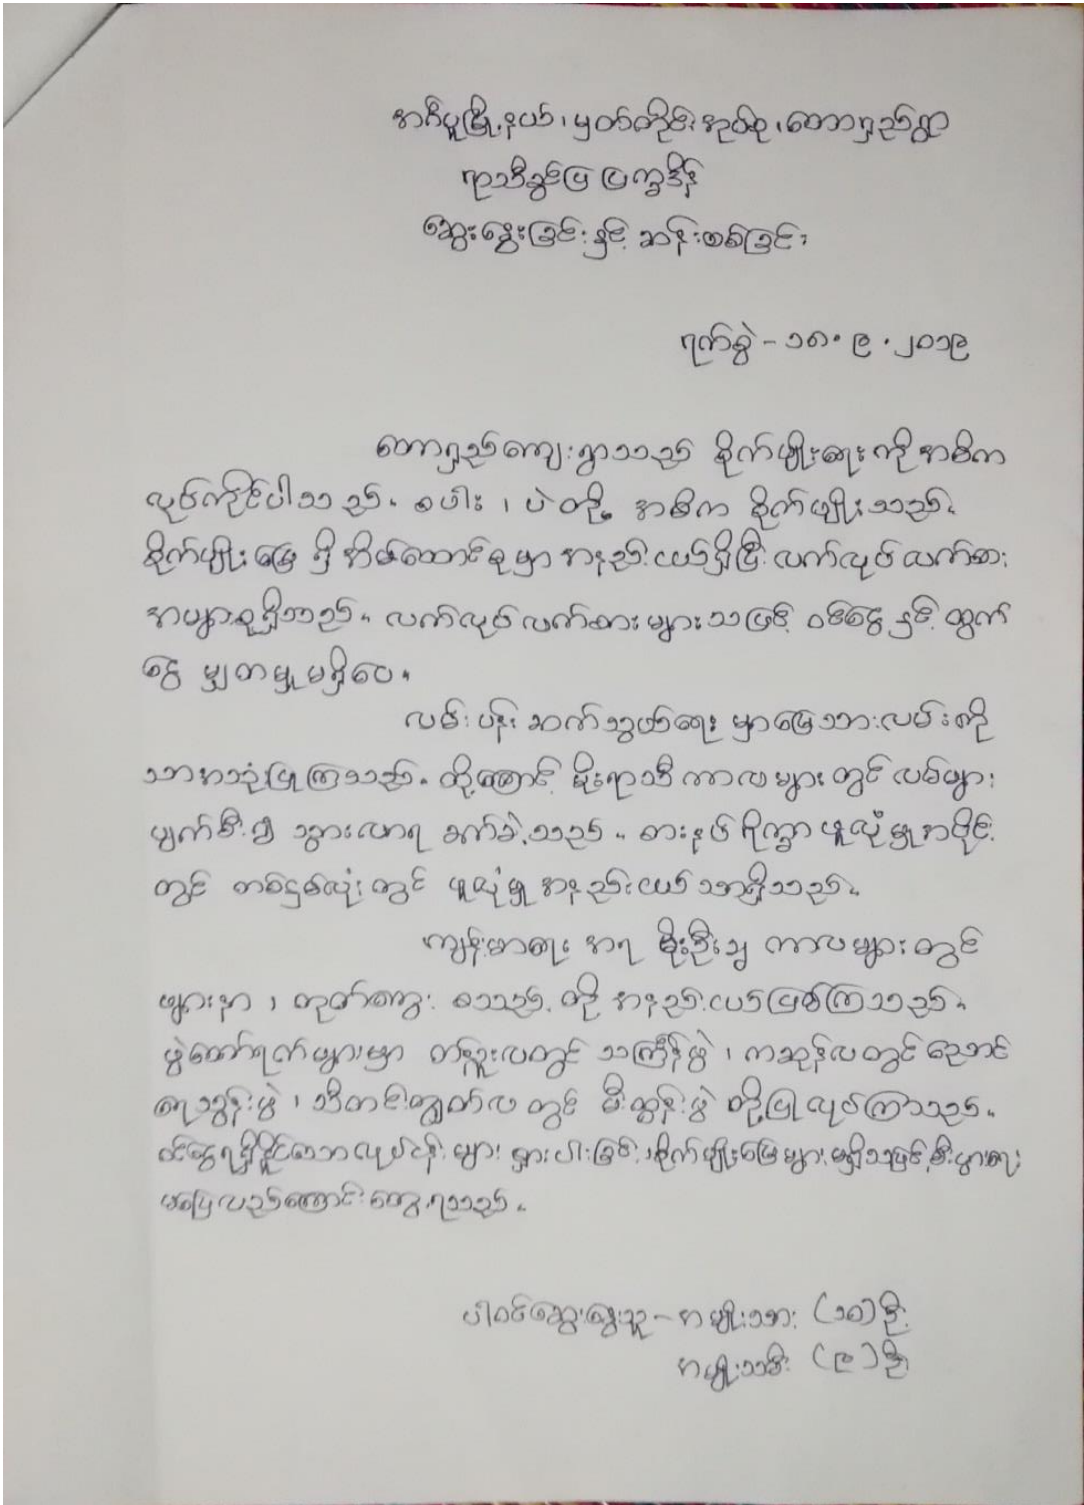 အင်္ဂပူမြို့နယ်၊ မှတ်တိုင်းအုပ်စု၊ တောရှည်ရွာ
ရာသီခွင်ပြ ပြက္ခဒိန်
ဆွေးနွေးခြင်းနှင့် ဆန်းစစ်ခြင်း
ရက်စွဲ - ၁၈.၉.၂၀၁၉
တောရှည်ကျေးရွာသည် စိုက်ပျိုးရေးကို အဓိက
လုပ်ကိုင်ပါသည်။ စပါး၊ ပဲ တို့ အဓိက စိုက်ပျိုးသည်။
စိုက်ပျိုးမြေ ရှိ အိမ်ထောင်စု မှာ အနည်းငယ်ရှိပြီး လက်လုပ် လက်စား
အများစုရှိသည်။ လက်လုပ် လက်စား များသဖြင့် ဝင်ငွေ နှင့် ထွက်
ငွေ မျှတမှု မရှိပေ။
လမ်းပန်း ဆက်သွယ်ရေး မှာ မြေသားလမ်းကို
သာ အသုံးပြုကြသည်။ ထို့ကြောင့် မိုးရာသီ ကာလများ တွင် လမ်းများ
ပျက်စီး၍ သွားလာရ ခက်ခဲသည်။ စားနပ်ရိက္ခာ ဖူလုံမှု အပိုင်း
တွင် တစ်နှစ်လုံး တွင် ဖူလုံမှု အနည်းငယ် သာရှိသည်။
ကျန်းမာရေး အရ မိုးဦးကျ ကာလများ တွင်
ဖျားနာ၊ တုပ်ကွေး စသည် တို့ အနည်းငယ် ဖြစ်ကြသည်။
ပွဲတော်ရက်များမှာ တန်ခူးလတွင် သင်္ကြန်ပွဲ၊ ကဆုန်လတွင် ညောင်
ရေသွန်းပွဲ၊ သီတင်းကျွတ်လ တွင် မီးထွန်းပွဲ တို့ပြုလုပ်ကြသည်။
ဝင်ငွေရရှိနိုင်သော လုပ်ငန်းများ ရှားပါးခြင်း၊ စိုက်ပျိုးမြေများ မရှိသဖြင့် စီးပွားရေး
မပြေလည်ကြောင်း တွေ့ရသည်။
ပါဝင်ဆွေးနွေးသူ - အမျိုးသား (၁၀) ဦး
အမျိုးသမီး (၉) ဦး